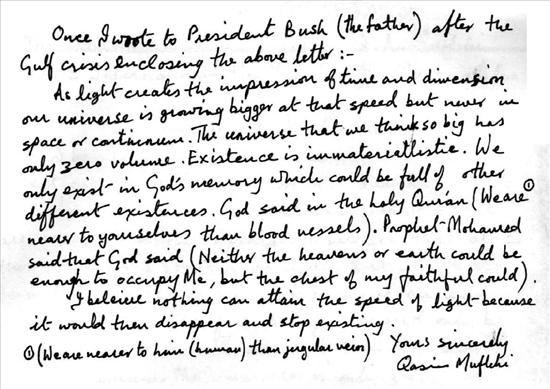 Once I wrote to President Bush (the father) after the
Gulf crisis enclosing the above letter :-
As light creates the impression of time and dimension
our universe is growing bigger at that speed but never in
space or continuum. The universe that we think so big has
only zero volume. Existence is immaterialistic. We
only exist in God's memory which could be full of other
different existences. God said in the holy Qurán (We are ①
nearer to yourselves than blood vessels). Prophet Mohamed
said that God said (Neither the heavens or earth could be
enough to occupy Me, but the chest of my faithful could).
I beleive nothing can attain the speed of light because
it would then disappear and stop existing.
① (We are nearer to him (human) than jugular vein) Yours sincerely
Qasim Muflchi